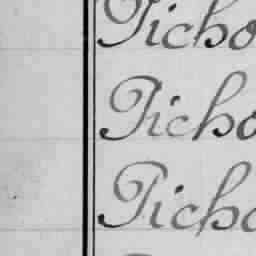 Picho
Picho
Picho